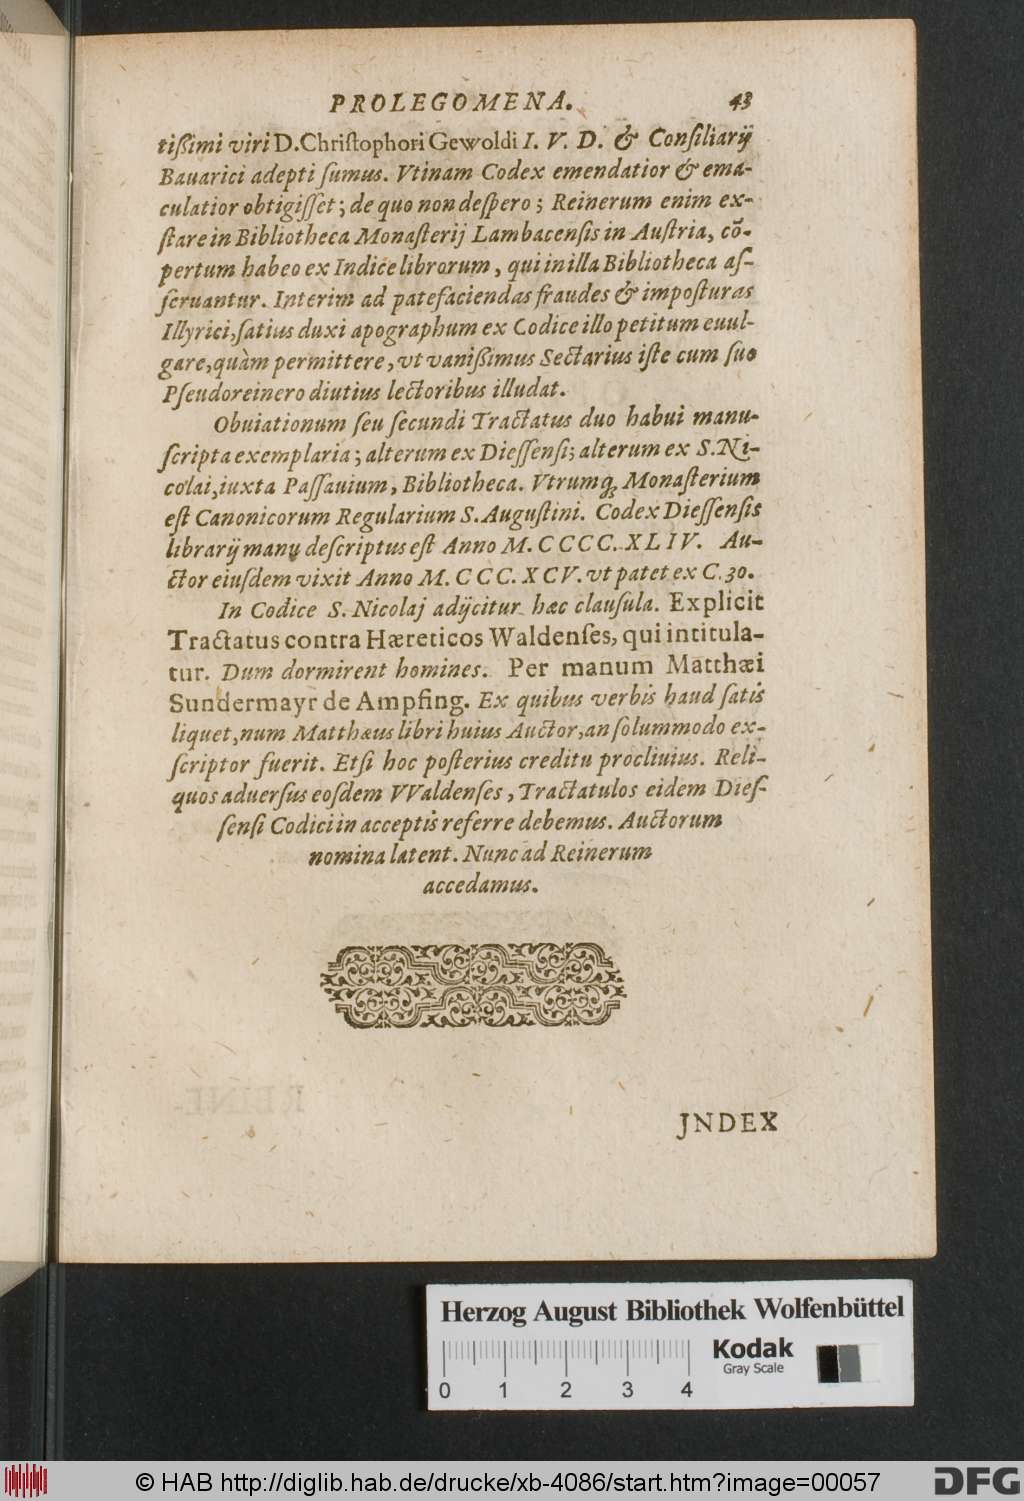 PROLEGOMENA. 43
tißimi viri D. Chriſtophori Gewoldi I. V. D. & Conſiliarij
Bauarici adepti ſumus. Vtinam Codex emendatior & ema-
culatior obtigiſſet; de quo non deſpero; Reinerum enim ex-
ſtare in Bibliotheca Monaſterij Lambacenſis in Auſtria, cō-
pertum habeo ex Indice librorum, qui in illa Bibliotheca aſ-
ſeruantur. Interim ad patefaciendas fraudes & impoſturas
Illyrici, ſatius duxi apographum ex Codice illo petitum euul-
gare, quàm permittere, vt vanißimus Sectarius iſte cum ſuo
Pſeudoreinero diutius lectoribus illudat.
Obuiationum ſeu ſecundi Tractatus duo habui manu-
ſcripta exemplaria; alterum ex Dieſſenſi; alterum ex S. Ni-
colai, iuxta Paſſauium, Bibliotheca. Vtrumq; Monaſterium
eſt Canonicorum Regularium S. Auguſtini. Codex Dieſſenſis
librarij manu deſcriptus eſt Anno M. CCCC. XLIV. Au-
ctor eiuſdem vixit Anno M. CCC. XCV. vt patet ex C. 30.
In Codice S. Nicolaj adijcitur hæc clauſula. Explicit
Tractatus contra Hæreticos Waldenſes, qui intitula-
tur. Dum dormirent homines. Per manum Matthæi
Sundermayr de Ampfing. Ex quibus verbis haud ſatis
liquet, num Matthæus libri huius Auctor, an ſolummodo ex-
ſcriptor fuerit. Etſi hoc poſterius creditu procliuius. Reli-
quos aduerſus eoſdem VValdenſes, Tractatulos eidem Dieſ-
ſenſi Codici in acceptis referre debemus. Auctorum
nomina latent. Nunc ad Reinerum
accedamus.
REINE-
JNDEX
Herzog August Bibliothek Wolfenbüttel
Kodak
Gray Scale
0 1 2 3 4
© HAB http://diglib.hab.de/drucke/xb-4086/start.htm?image=00057
DFG